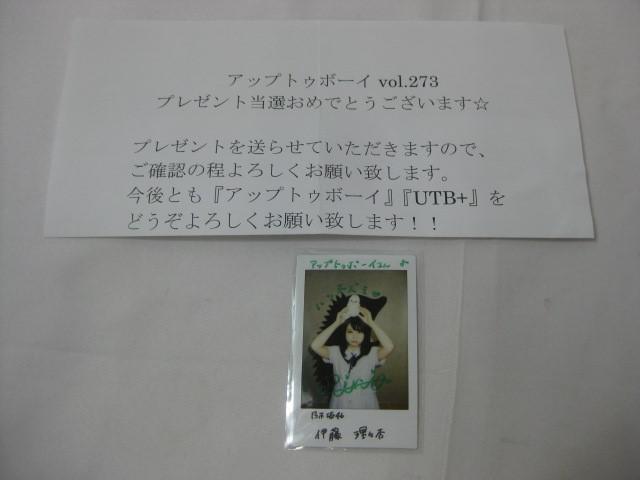 アップトゥボーイ vol.273
プレゼント当選おめでとうございます☆
プレゼントを送らせていただきますので、
ご確認の程よろしくお願い致します。
今後とも『アップトゥボーイ』『UTB+』を
どうぞよろしくお願い致します！！
アップトゥボーイさん
乃木坂46
伊藤 理々杏